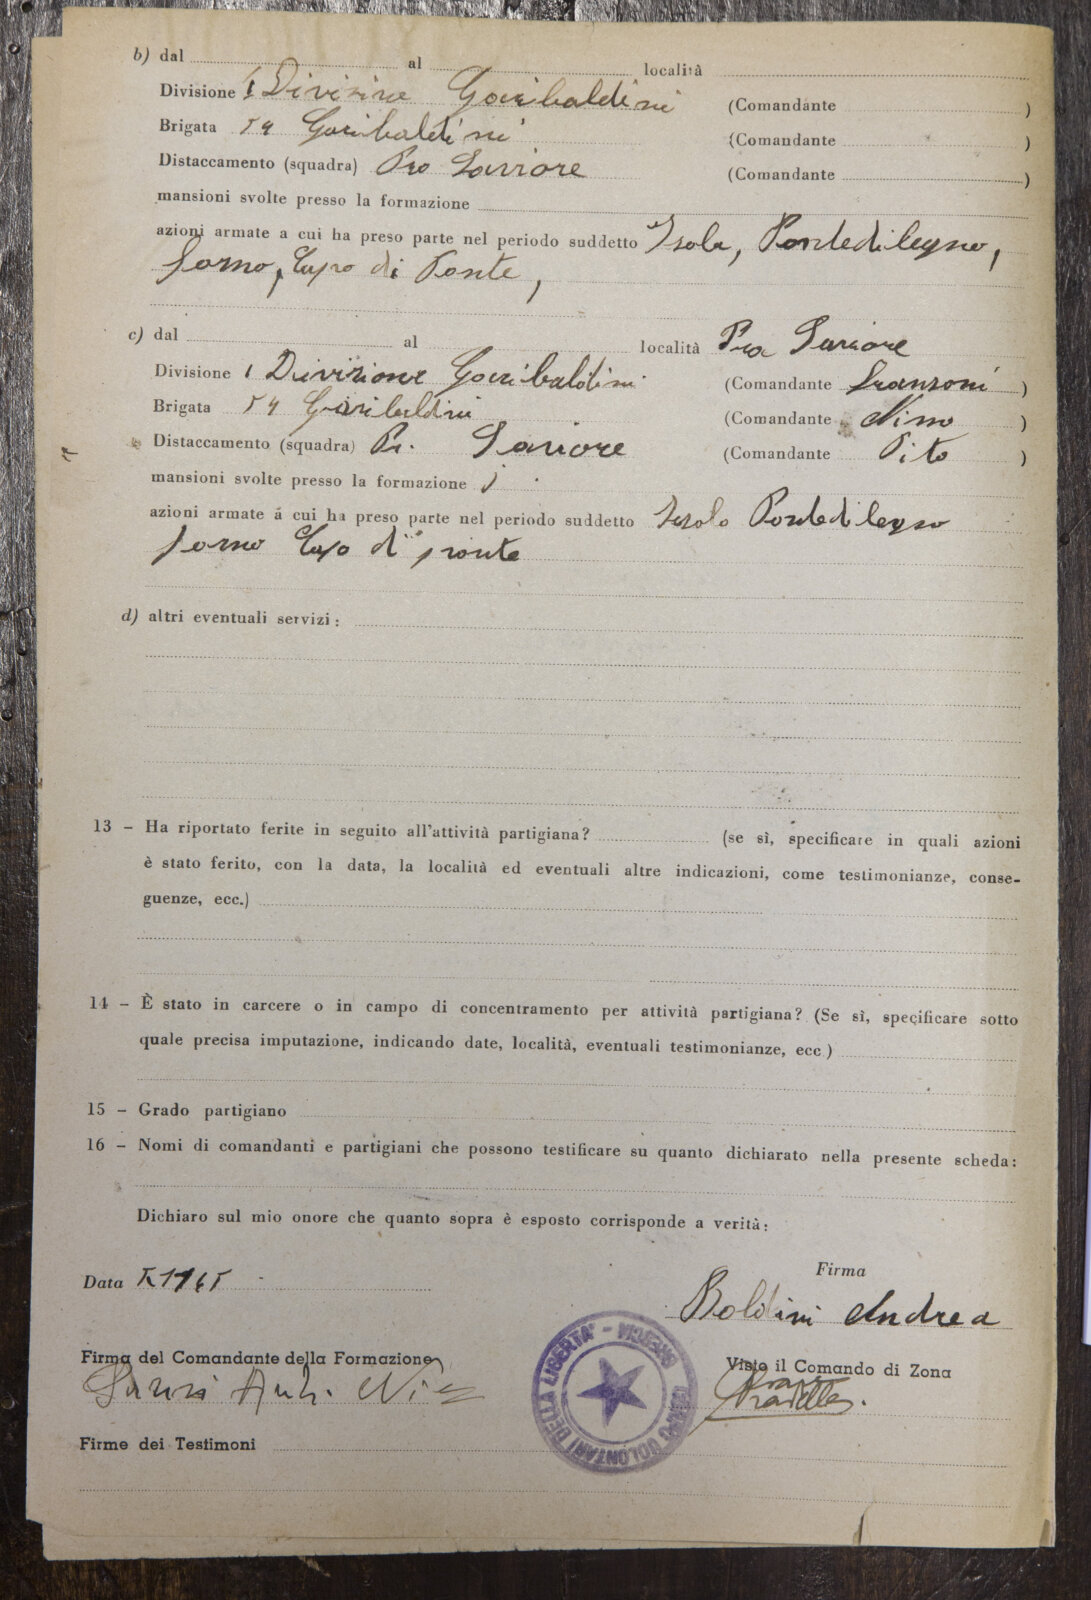 b) dal al località
Divisione 1 Divisine Garibaldini (Comandante )
Brigata 54 Garibaldini (Comandante )
Distaccamento (squadra) Pro Saviore (Comandante )
mansioni svolte presso la formazione
azioni armate a cui ha preso parte nel periodo suddetto Isola, Pontedilegno,
Forno, Capo di Ponte,
c) dal al località Pra Saviore
Divisione 1 Divizione Garibaldini (Comandante )
Brigata 54 Garibaldini (Comandante Nino )
Distaccamento (squadra) Pr. Saviore (Comandante Pito )
mansioni svolte presso la formazione
azioni armate á cui ha preso parte nel periodo suddetto Isola Pontedilegno
Forno Capo di ponte
d) altri eventuali servizi :
13 – Ha riportato ferite in seguito all'attività partigiana? (se sì, specificare in quali azioni
è stato ferito, con la data, la località ed eventuali altre indicazioni, come testimonianze, conse-
guenze, ecc.)
14 – È stato in carcere o in campo di concentramento per attività partigiana? (Se sì, specificare sotto
quale precisa imputazione, indicando date, località, eventuali testimonianze, ecc )
15 – Grado partigiano
16 – Nomi di comandanti e partigiani che possono testificare su quanto dichiarato nella presente scheda :
Dichiaro sul mio onore che quanto sopra è esposto corrisponde a verità :
Data
Firma
Boldini Andrea
Firma del Comandante della Formazione
Visto il Comando di Zona
CORPO VOLONTARI DELLA LIBERTA' - BRESCIA
Firme dei Testimoni